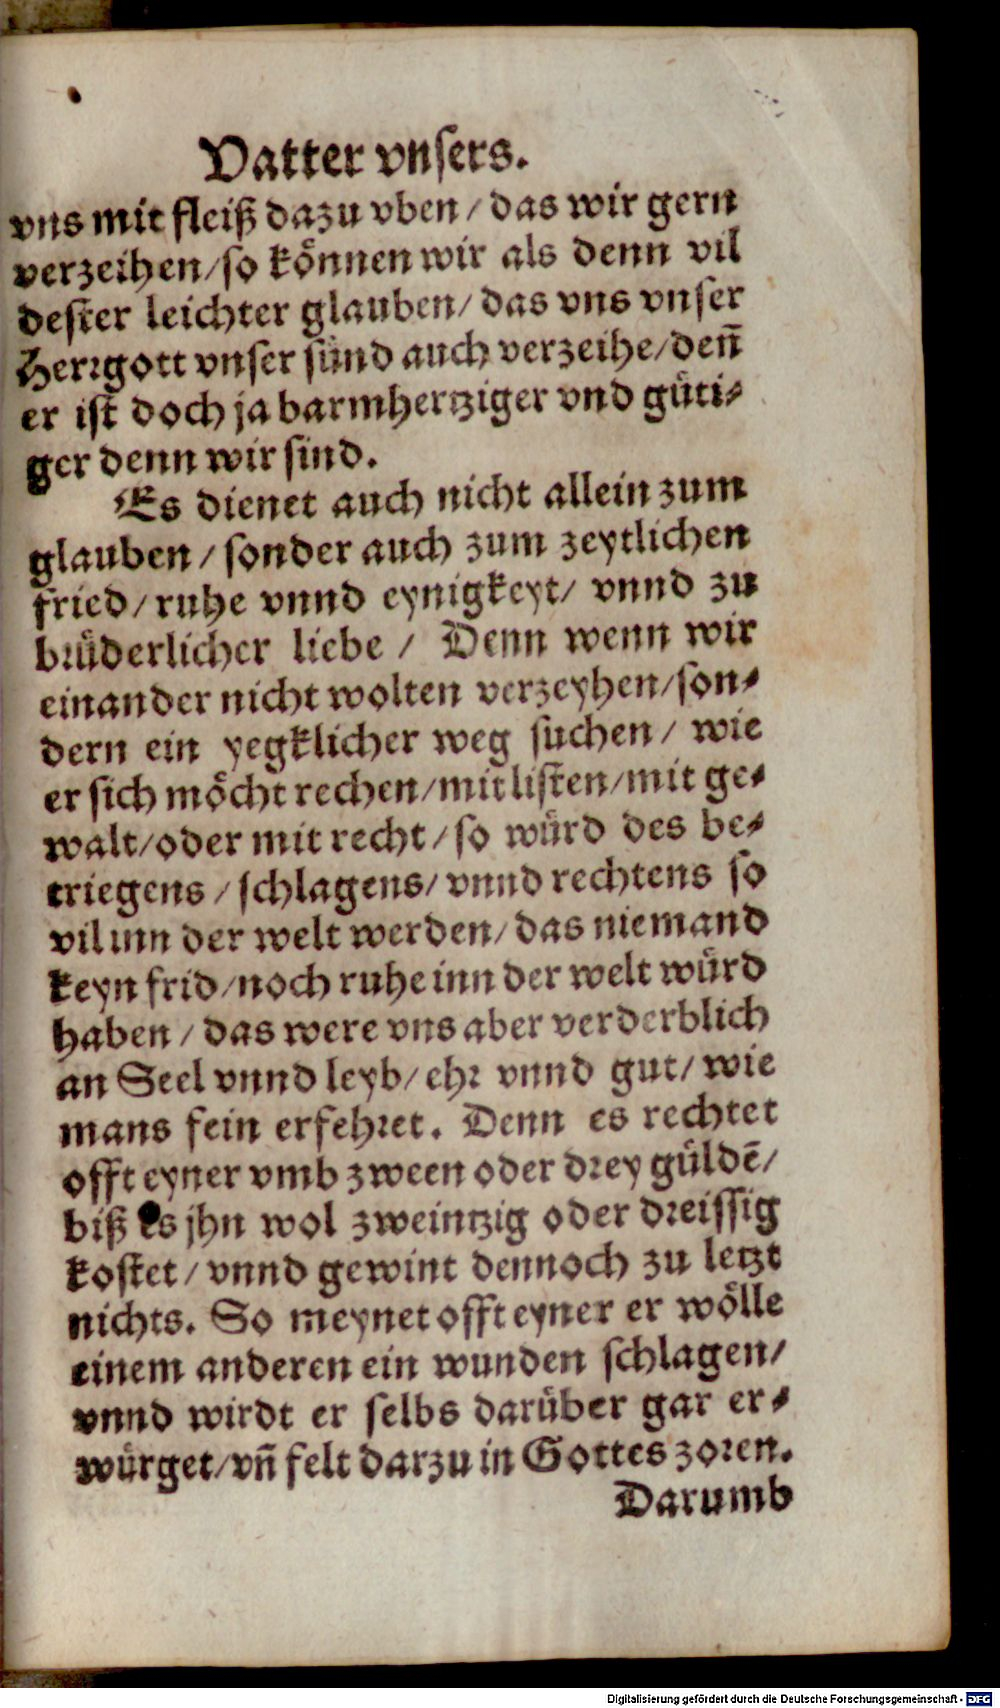 Vatter vnsers.
vns mit fleiß dazu vben / das wir gern
verzeihen / so können wir als denn vil
dester leichter glauben / das vns vnser
Herrgott vnser sünd auch verzeihe / deñ
er ist doch ja barmhertziger vnd güti⸗
ger denn wir sind.
Es dienet auch nicht allein zum
glauben / sonder auch zum zeytlichen
fried / ruhe vnnd eynigkeyt / vnnd zu
brüderlicher liebe / Denn wenn wir
einander nicht wolten verzeyhen / son⸗
dern ein yegklicher weg suchen / wie
er sich möcht rechen / mit listen / mit ge⸗
walt / oder mit recht / so würd des be⸗
triegens / schlagens / vnnd rechtens so
vil inn der welt werden / das niemand
keyn frid / noch ruhe inn der welt würd
haben / das were vns aber verderblich
an Seel vnnd leyb / ehr vnnd gut / wie
mans fein erfehret. Denn es rechtet
offt eyner vmb zween oder drey güldē /
biß es jhn wol zweintzig oder dreissig
kostet / vnnd gewint dennoch zu letzt
nichts. So meynet offt eyner er wölle
einem anderen ein wunden schlagen /
vnnd wirdt er selbs darüber gar er⸗
würget / vñ felt darzu in Gottes zoren.
Darumb
Digitalisierung gefördert durch die Deutsche Forschungsgemeinschaft - DFG